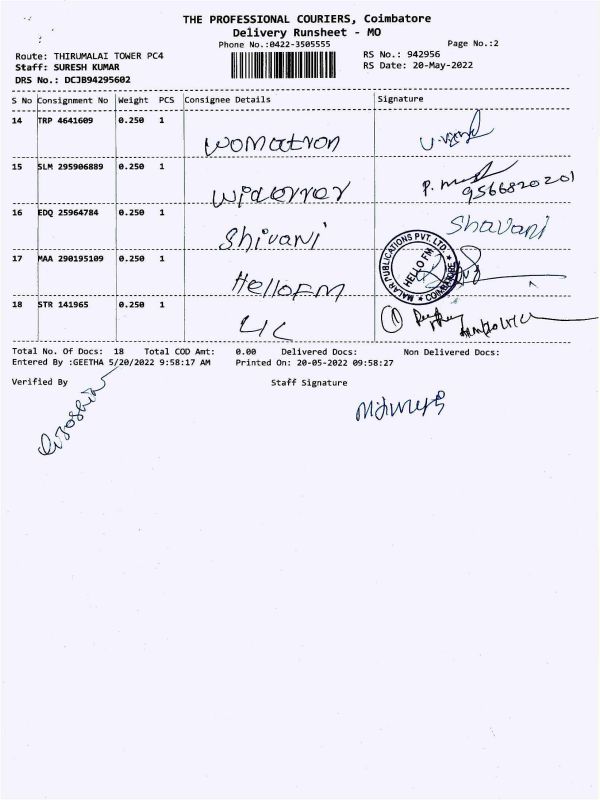 THE PROFESSIONAL COURIERS, Coimbatore
Delivery Runsheet - MO
Phone No.:0422-3505555
Page No.:2
Route: THIRUMALAI TOWER PC4
RS No.: 942956
Staff: SURESH KUMAR
RS Date: 20-May-2022
DRS No.: DCJB94295602
S No Consignment No Weight PCS Consignee Details Signature
14 TRP 4641609 0.250 1 Womatron
15 SLM 295906889 0.250 1
P. 9566820201
16 EDQ 25964784 0.250 1 Shivani Shavani
17 MAA 290195109 0.250 1 HelloFM
MALAR PUBLICATIONS PVT. LTD. ★ COIMBATORE ★
HELLO FM
18 STR 141965 0.250 1 LIC
Total No. Of Docs: 18 Total COD Amt: 0.00 Delivered Docs: Non Delivered Docs:
Entered By :GEETHA 5/20/2022 9:58:17 AM Printed On: 20-05-2022 09:58:27
Verified By Staff Signature